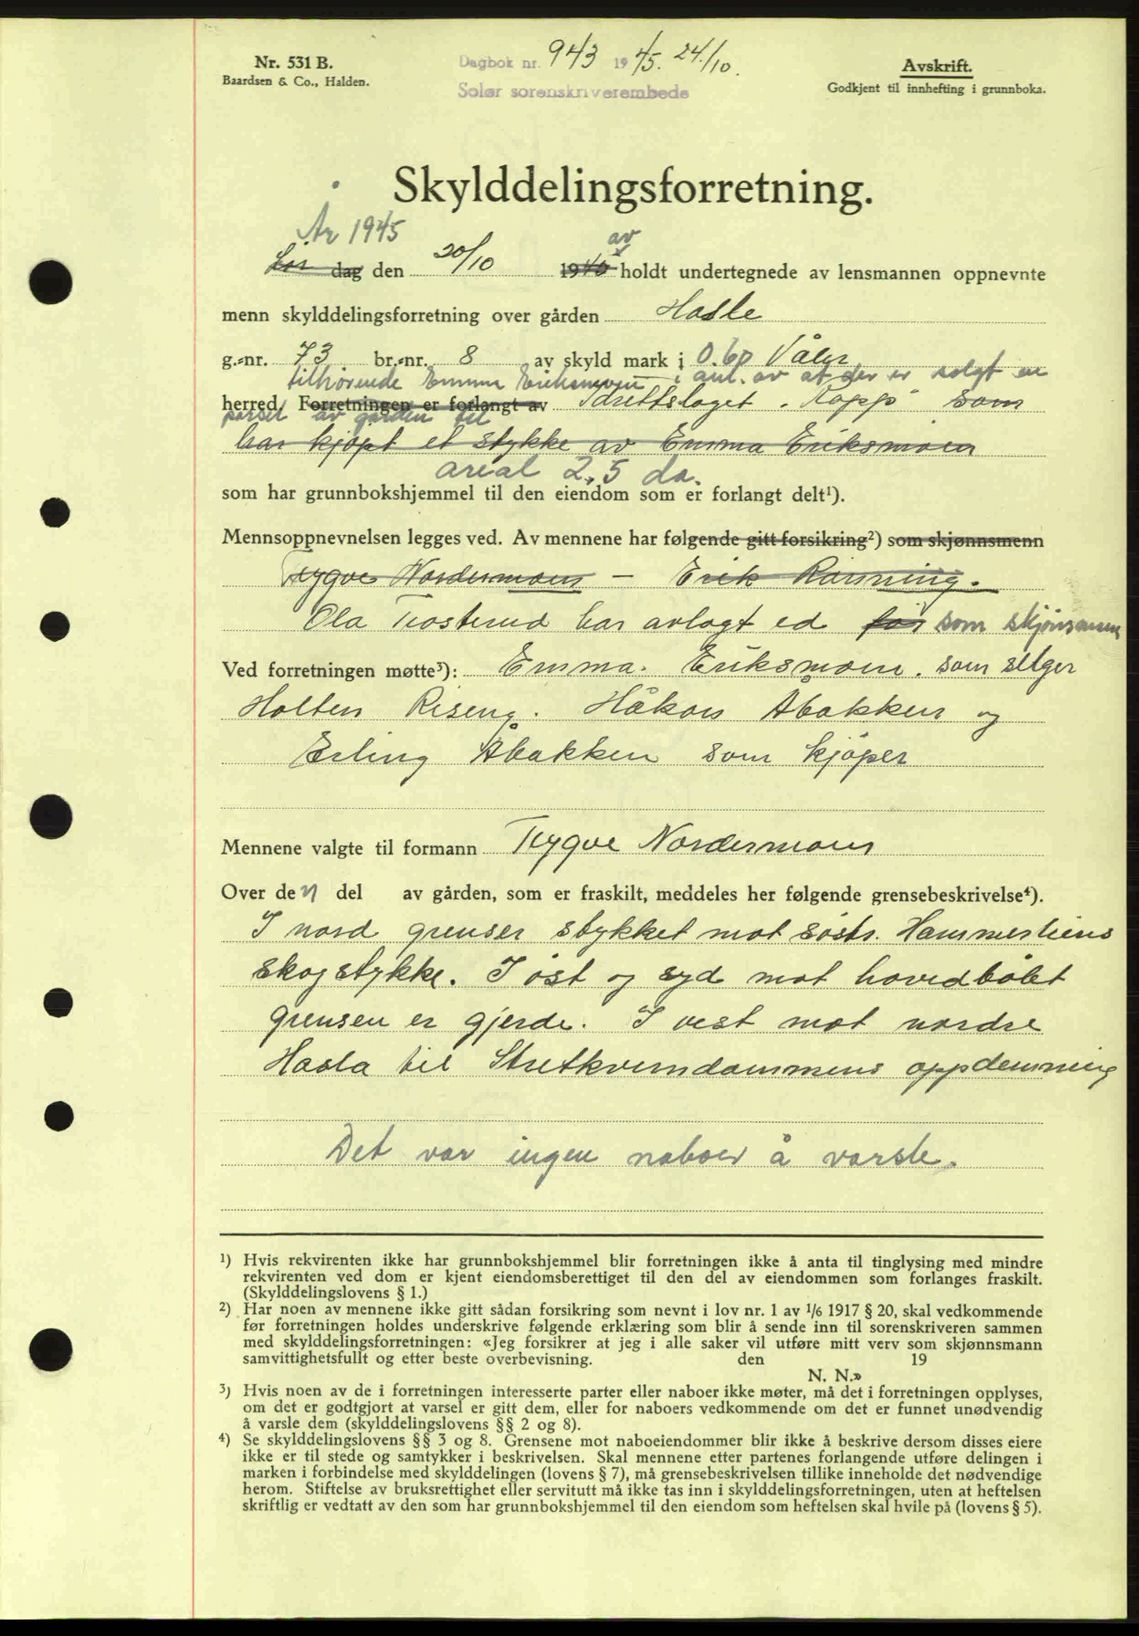 Nr. 531 B.
Baardsen & Co., Halden.
Dagbok nr. 943 1945. 24/10.
Solør sorenskriverembede
Avskrift.
Godkjent til innhefting i grunnboka.
Skylddelingsforretning.
År 1945
av
Lør dag den 20/10 1945 holdt undertegnede av lensmannen oppnevnte
menn skylddelingsforretning over gården Hasle
g.-nr. 73 br.-nr. 8 av skyld mark 0.60 i Våler
tilhørende Emma Eriksmoen i anl. av at der er solgt en
herred. Forretningen er forlangt av Idrettslaget "Kapp" som
parsel av gården til
har kjøpt et stykke av Emma Eriksmoen
areal 2,5 da.
som har grunnbokshjemmel til den eiendom som er forlangt delt¹).
Mennsoppnevnelsen legges ved. Av mennene har følgende gitt forsikring²) som skjønnsmenn
Trygve Nordermoen - Erik Rønning.
Ola Trosterud har avlagt ed før som skjønsmenn
Ved forretningen møtte³): Emma Eriksmoen. som selger
Holten Riseng. Håkon Åbakken og
Erling Åbakken som kjøper
Mennene valgte til formann Trygve Nordermoen
Over den del av gården, som er fraskilt, meddeles her følgende grensebeskrivelse⁴).
I nord grenser stykket mot søstr. Hammerstiens
skogstykke. I øst og syd mot hovedbølet
grensen er gjerde. I vest mot nordre
Hasla til oppdemning
Det var ingen naboer å varsle.
¹) Hvis rekvirenten ikke har grunnbokshjemmel blir forretningen ikke å anta til tinglysing med mindre
rekvirenten ved dom er kjent eiendomsberettiget til den del av eiendommen som forlanges fraskilt.
(Skylddelingslovens § 1.)
²) Har noen av mennene ikke gitt sådan forsikring som nevnt i lov nr. 1 av 1/6 1917 § 20, skal vedkommende
før forretningen holdes underskrive følgende erklæring som blir å sende inn til sorenskriveren sammen
med skylddelingsforretningen: «Jeg forsikrer at jeg i alle saker vil utføre mitt verv som skjønnsmann
samvittighetsfullt og etter beste overbevisning. den 19
N. N.»
³) Hvis noen av de i forretningen interesserte parter eller naboer ikke møter, må det i forretningen opplyses,
om det er godtgjort at varsel er gitt dem, eller for naboers vedkommende om det er funnet unødvendig
å varsle dem (skylddelingslovens §§ 2 og 8).
⁴) Se skylddelingslovens §§ 3 og 8. Grensene mot naboeiendommer blir ikke å beskrive dersom disses eiere
ikke er til stede og samtykker i beskrivelsen. Skal mennene etter partenes forlangende utføre delingen i
marken i forbindelse med skylddelingen (lovens § 7), må grensebeskrivelsen tillike inneholde det nødvendige
herom. Stiftelse av bruksrettighet eller servitutt må ikke tas inn i skylddelingsforretningen, uten at heftelsen
skriftlig er vedtatt av den som har grunnbokshjemmel til den eiendom som heftelsen skal hvile på (lovens § 5).